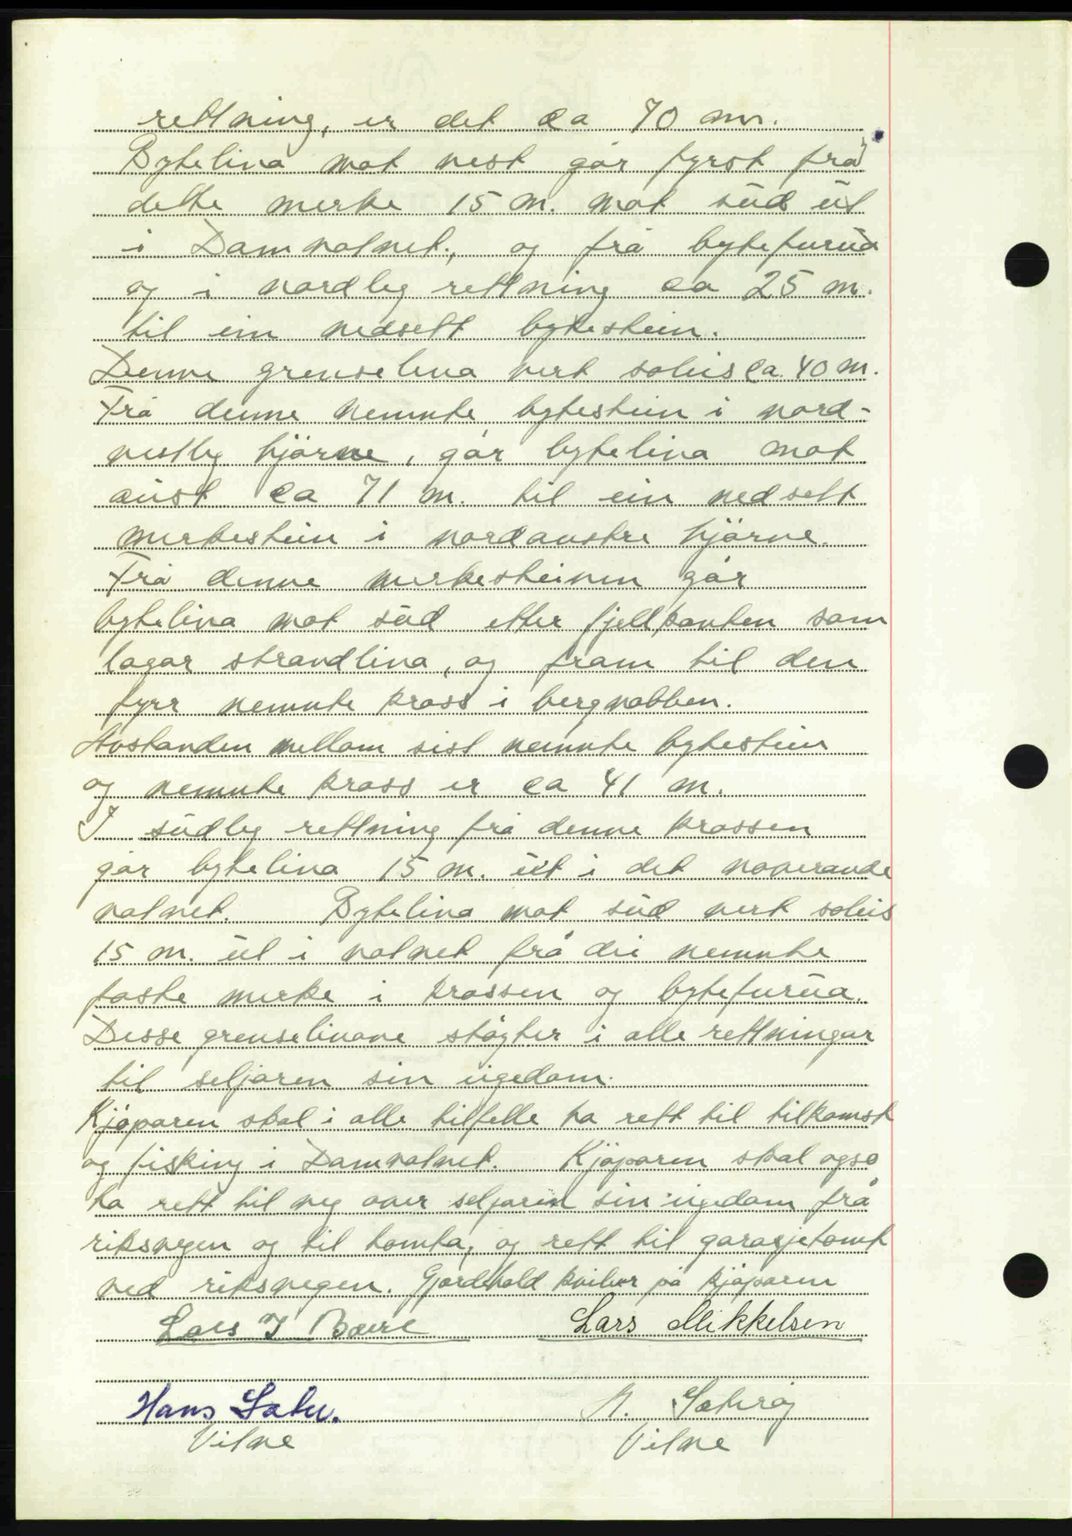 rettning, er det ca 70 m.
Bytelina mot vest går fyrst frå
dette merke 15 m. mot süd üt
i Damvatnet, og frå bytefurüa
og i nordleg rettning ca 25 m.
til ein nedsett bytestein.
Denne grenselina vert soleis ca 40 m.
Frå denne nemnte bytestein i nord-
vestleg hjørne, går bytelina mot
aust ca 71 m. til ein nedsett
merkestein i nordaustre hjørne.
Frå denne merkesteinen går
bytelina mot süd etter fjellkanten som
lagar strandlina, og fram til den
fyrr nemnte kross i bergnabben.
Avstanden mellom sist nemnte bytestein
og nemnte kross er ca 41 m.
I südleg rettning frå denne krossen
går bytelina 15 m. üt i det noverande
vatnet. Bytelina mot süd vert soleis
15 m. üt i vatnet frå dei nemnte
faste merke i krossen og bytefurüa.
Desse grenselinane støyter i alle rettningar
til seljaren sin eigedom.
Kjøparen skal i alle tilfelle ha rett til tilkomst
og fisking i Damvatnet. Kjøparen skal også
ha rett til veg over seljaren sin eigedom frå
riksvegen og til tomta, og rett til garasjetomt
ved riksvegen. Gjerdehald kviler på kjøparen
Lars J Bøere Lars Mikkelsen
Hans Sater. A. Sæterøj
Vitne Vitne